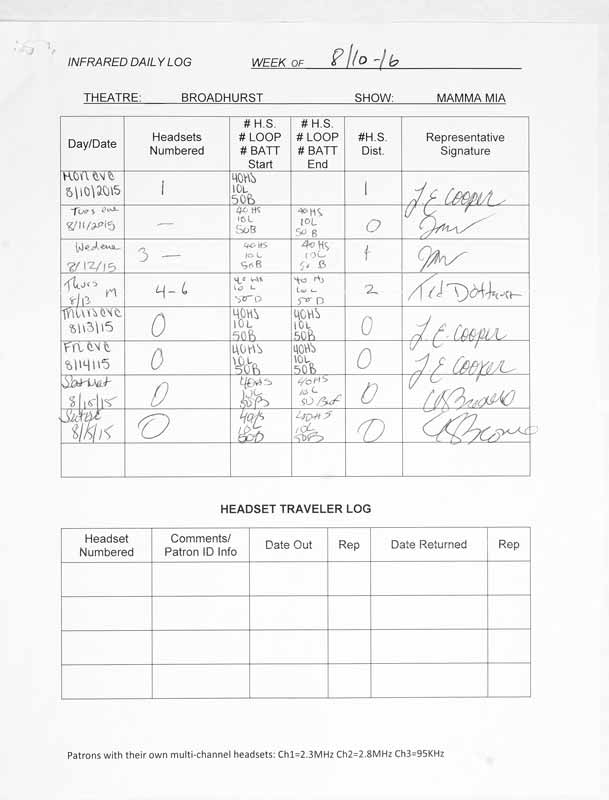 INFRARED DAILY LOG WEEK OF 8/10-16
THEATRE: BROADHURST SHOW: MAMMA MIA
Day/Date Headsets Numbered # H.S. # LOOP # BATT Start # H.S. # LOOP # BATT End #H.S. Dist. Representative Signature
Mon eve 8/10/2015 1 40HS 10L 50B 1 J. E Cooper
Tues eve 8/11/2015 — 40 HS 10L 50B 40 HS 10L 50 B 0
Wed eve 8/12/15 3 — 40HS 10L 50B 40HS 10L 50 B 1
Thurs M 8/13 4-6 40 HS 10 L 50 B 40 HS 10 L 50B 2 Ted
Thurs eve 8/13/15 0 40HS 10L 50B 40HS 10L 50B 0 J. E. Cooper
Fri eve 8/14/15 0 40HS 10L 50B 40HS 10L 50B 0 J. E Cooper
Sat mat 8/15/15 0 40HS 10L 50B 40HS 10L 50 Bat 0
8/15/15 0 40HS 10L 50B 40HS 10L 50B 0
HEADSET TRAVELER LOG
Headset Numbered Comments/ Patron ID Info Date Out Rep Date Returned Rep
Patrons with their own multi-channel headsets: Ch1=2.3MHz Ch2=2.8MHz Ch3=95KHz